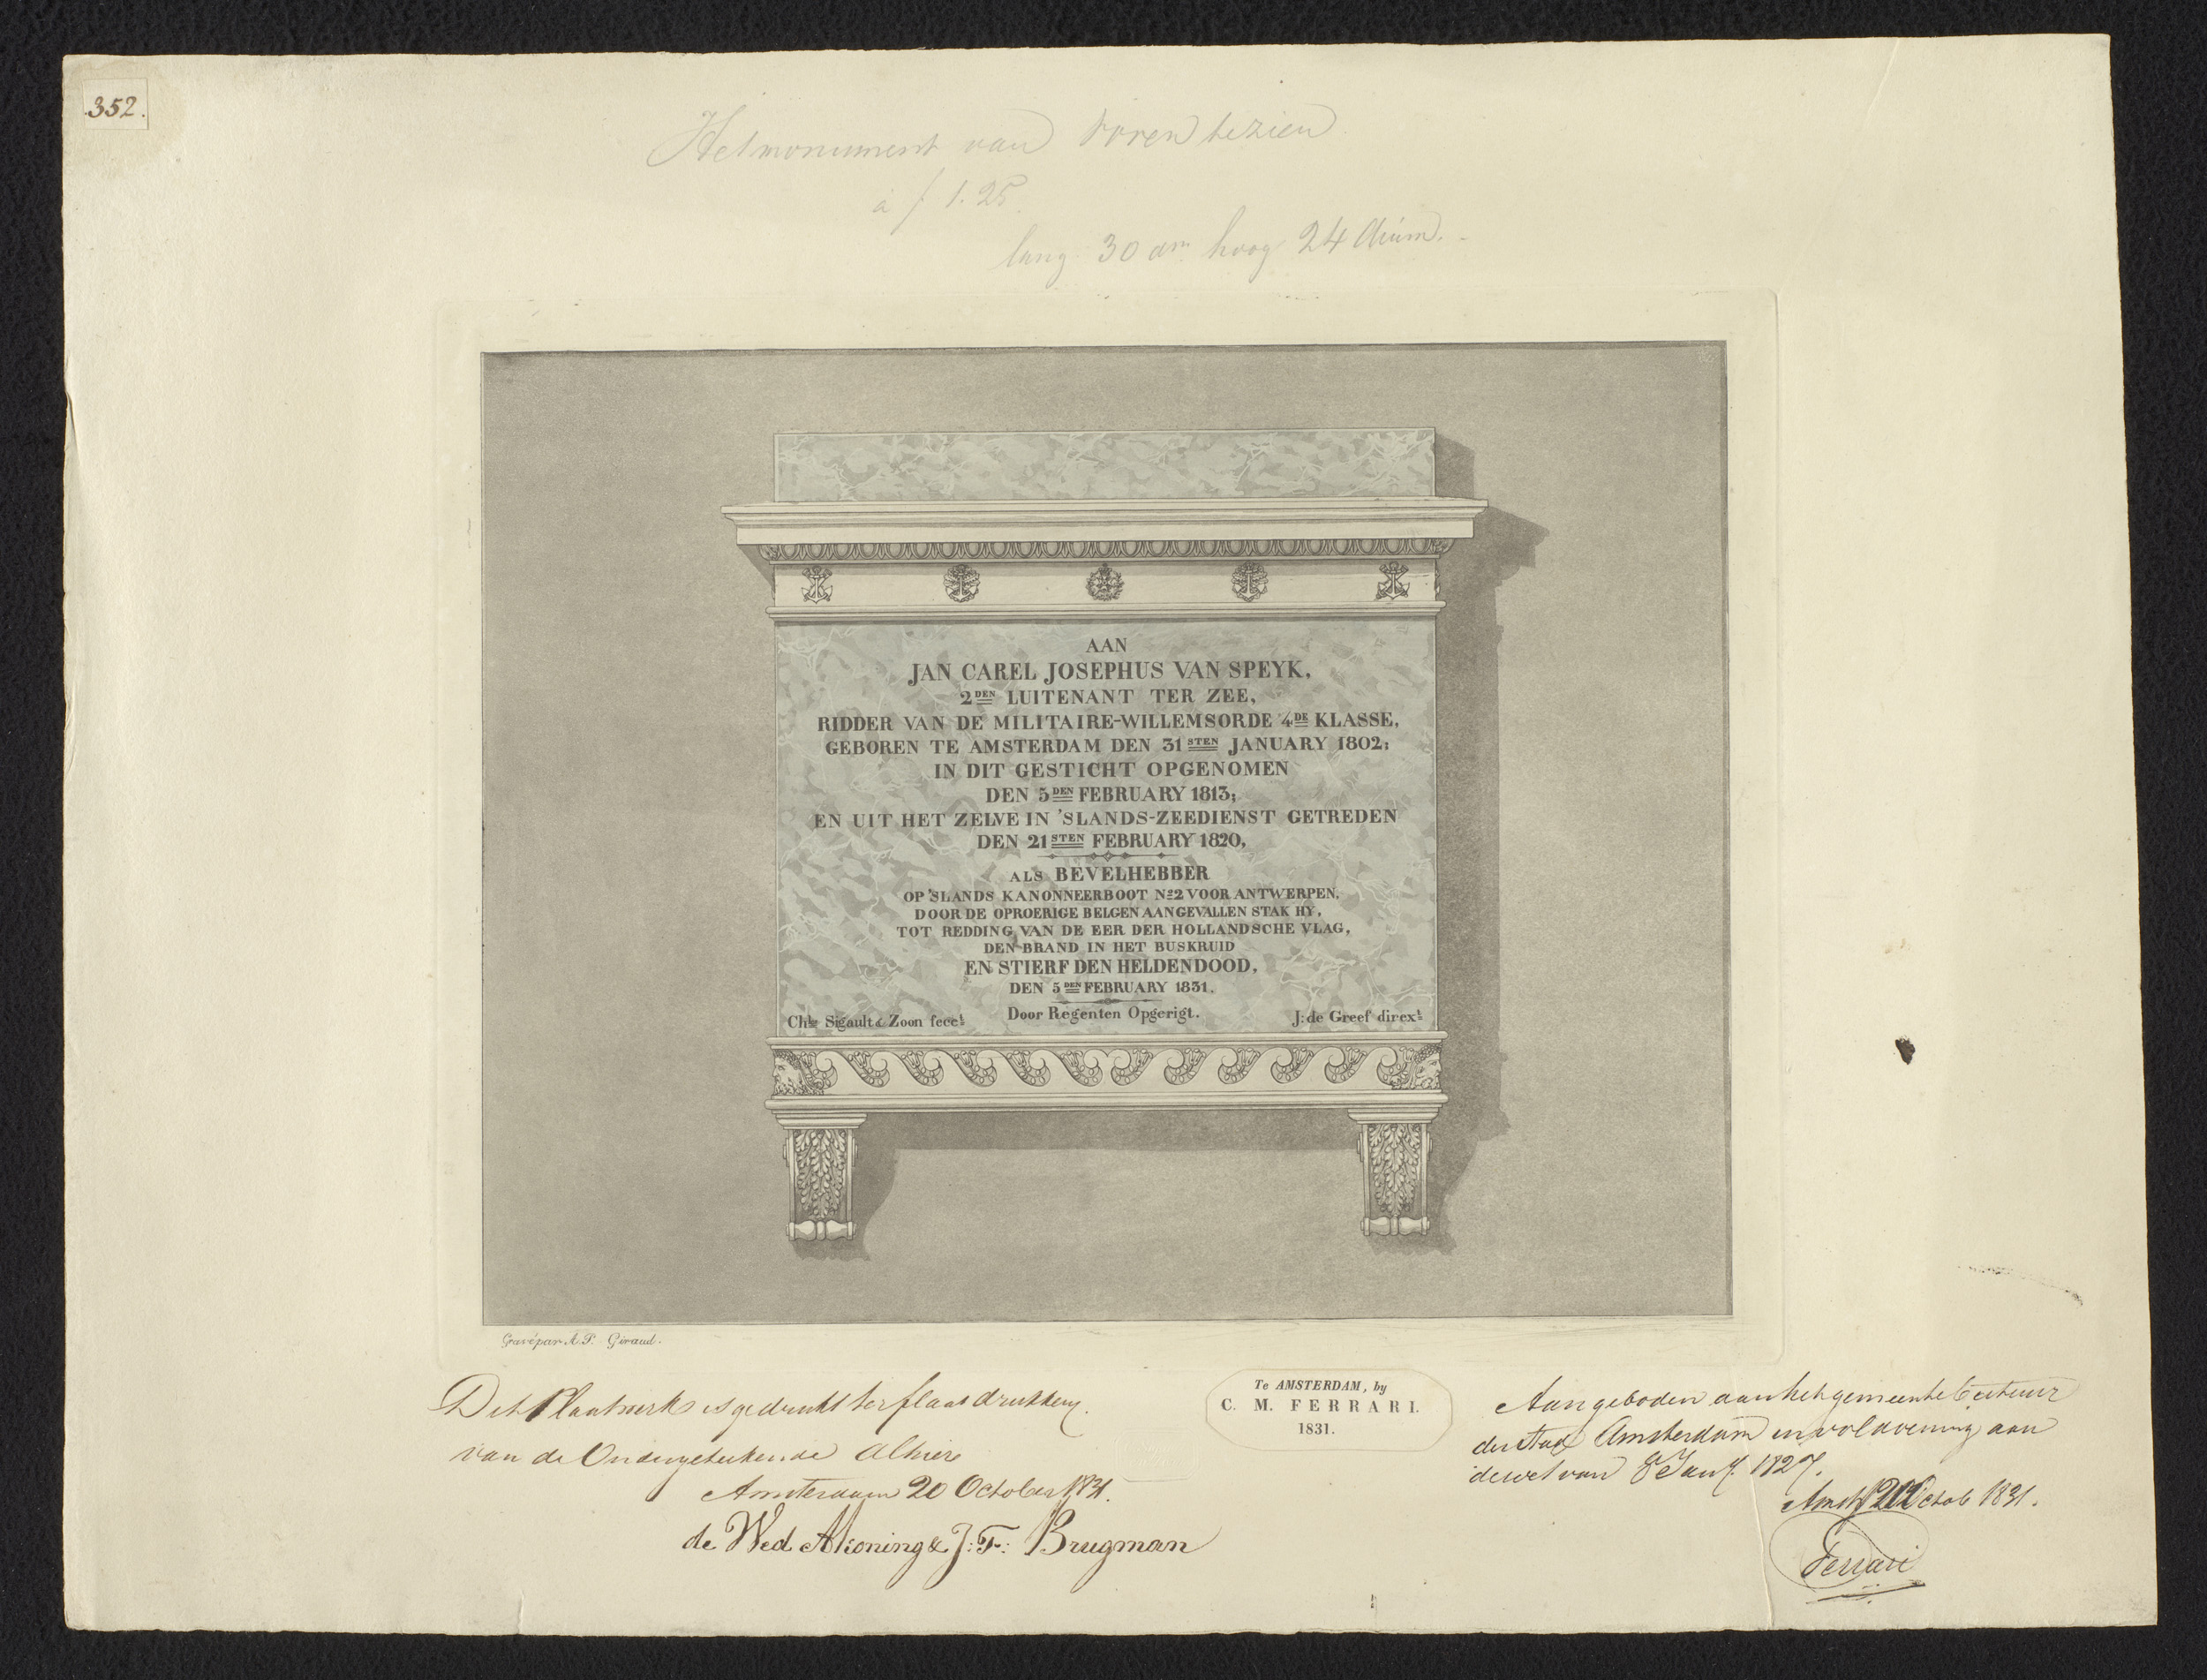 352.
Het monument van voren te zien
à f 1.25
lang 30 dm hoog 24 duim.
AAN
JAN CAREL JOSEPHUS VAN SPEYK,
2DEN LUITENANT TER ZEE,
RIDDER VAN DE MILITAIRE-WILLEMSORDE 4DE KLASSE,
GEBOREN TE AMSTERDAM DEN 31STEN JANUARY 1802;
IN DIT GESTICHT OPGENOMEN
DEN 5DEN FEBRUARY 1813;
EN UIT HET ZELVE IN 'SLANDS-ZEEDIENST GETREDEN
DEN 21STEN FEBRUARY 1820,
ALS BEVELHEBBER
OP 'SLANDS KANONNEERBOOT No 2 VOOR ANTWERPEN,
DOOR DE OPROERIGE BELGEN AANGEVALLEN STAK HY,
TOT REDDING VAN DE EER DER HOLLANDSCHE VLAG,
DEN BRAND IN HET BUSKRUID
EN STIERF DEN HELDENDOOD,
DEN 5DEN FEBRUARY 1831.
Door Regenten Opgerigt.
Chls Sigault & Zoon fect J: de Greef dirext
Gravé par A. P. Giraud.
Dit Plaatwerk is gedrukt ter plaatdrukkery
van de Ondergetekende Alhier
Amsterdam 20 October 1831.
de Wed A Koning & J: F: Brugman
Te AMSTERDAM, by
C. M. FERRARI.
1831.
Aangeboden aan het gemeente bestuur
der stad Amsterdam in voldoening aan
de wet van 8 Jany. 1827.
Amst Octob 1831.
Ferrari